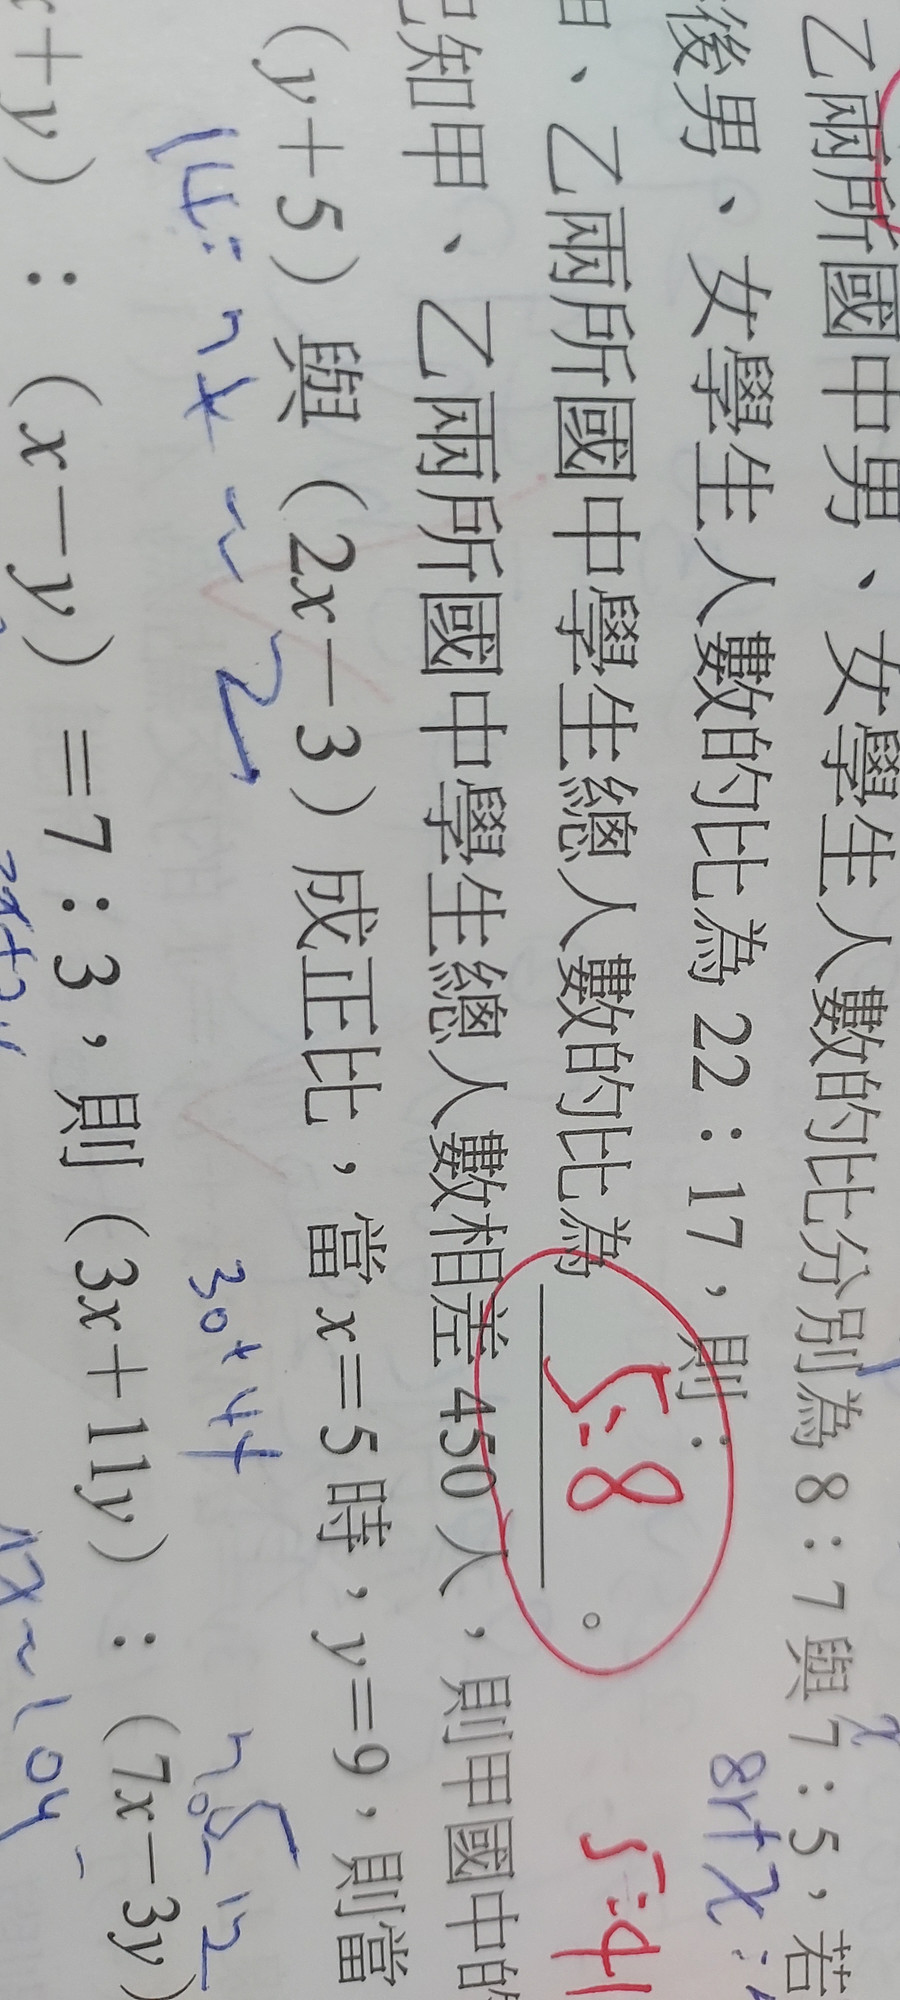 乙兩所國中男、女學生人數的比分別為 8：7 與 7：5，若
後男、女學生人數的比為 22：17，則：
、乙兩所國中學生總人數的比為 5:8 。
知甲、乙兩所國中學生總人數相差 450 人，則甲國中的
(y+5) 與 (2x-3) 成正比，當 x=5 時，y=9，則當
+y) : (x-y) =7:3，則 (3x+11y) : (7x-3y)
5:4
30+44